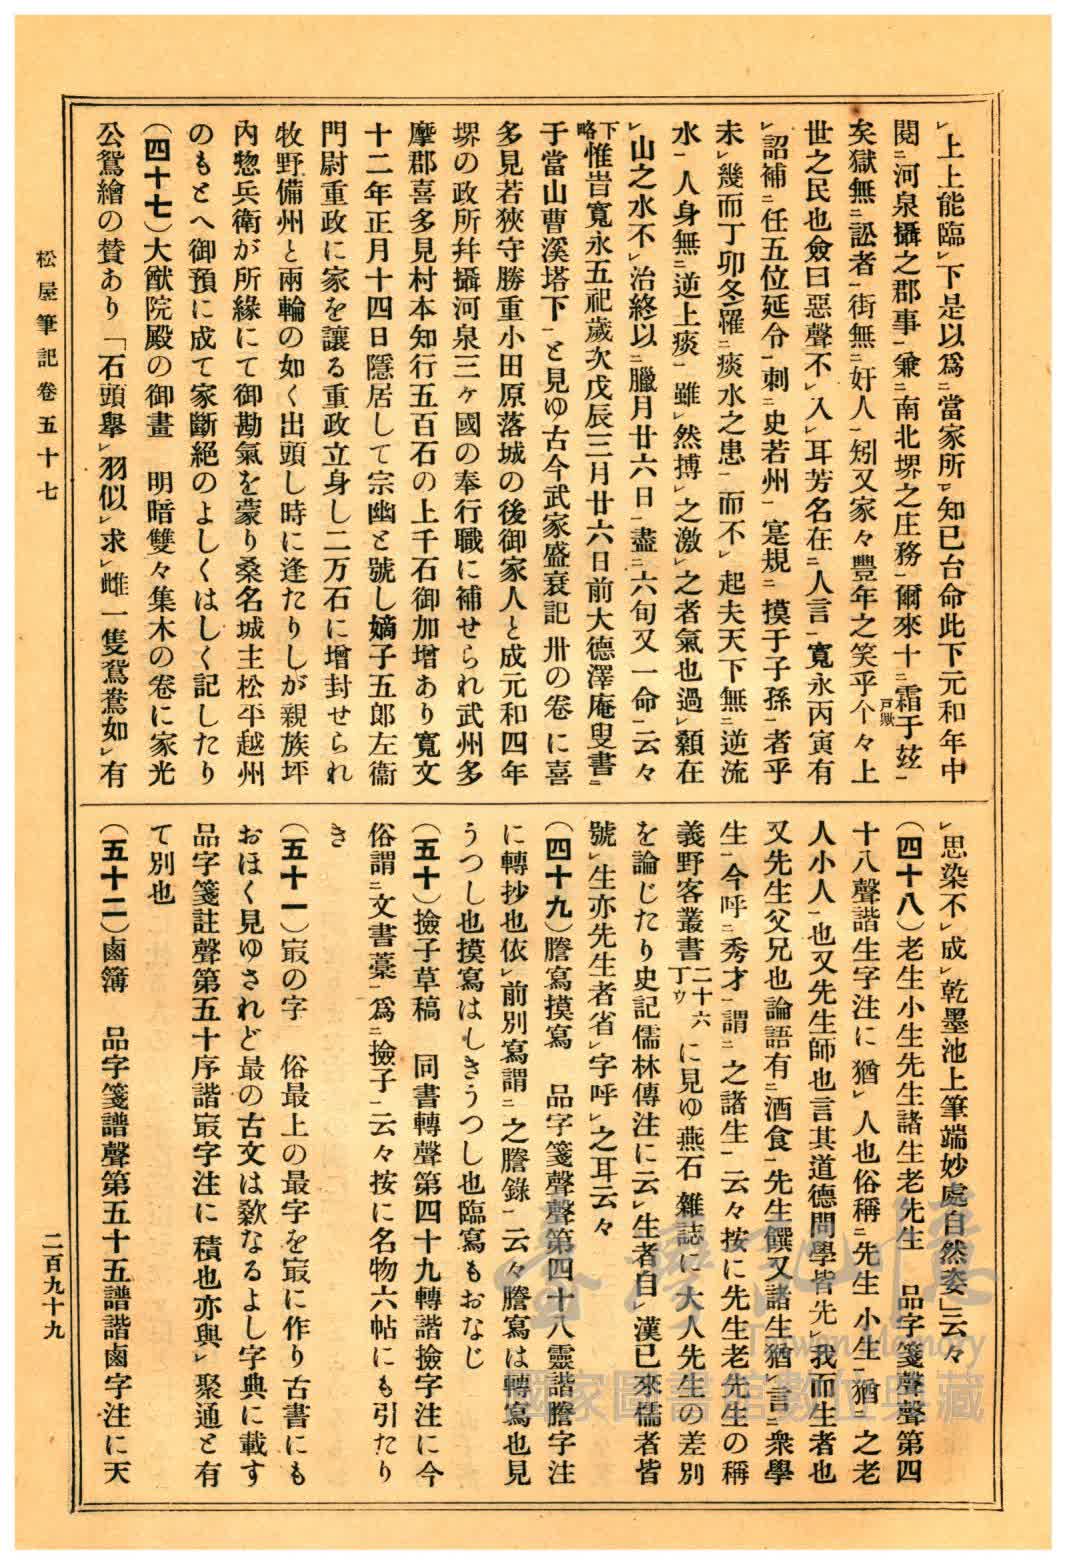 ㆑上上能臨㆑下是以爲㆓當家所㆒知已台命此下元和年中
閱㆓河泉攝之郡事㆒兼㆓南北堺之庄務㆒爾來十㆓霜于玆㆒
矣獄無㆓訟者㆒街無㆓奸人㆒矧又家々豐年之笑乎个々上戸歟
世之民也僉曰惡聲不㆑入㆑耳芳名在㆓人言㆒寬永丙寅有
㆑詔補㆓任五位延令㆒刺㆓史若州㆒寔規㆓摸于子孫㆒者乎
未㆑幾而丁卯冬罹㆓痰水之患㆒而不㆑起夫天下無㆓逆流
水㆒人身無㆓逆上痰㆒雖㆑然搏㆑之激㆑之者氣也過㆑顙在
㆑山之水不㆑治終以㆓臘月廿六日㆒盡㆓六旬又一命㆒云々
下略惟旹寬永五祀歲次戊辰三月廿六日前大德澤庵叟書㆓
于當山曹溪塔下㆒と見ゆ古今武家盛衰記卅の卷に喜
多見若狹守勝重小田原落城の後御家人と成元和四年
堺の政所幷攝河泉三ヶ國の奉行職に補せられ武州多
摩郡喜多見村本知行五百石の上千石御加增あり寬文
十二年正月十四日隱居して宗幽と號し嫡子五郎左衞
門尉重政に家を讓る重政立身し二万石に增封せられ
牧野備州と兩輪の如く出頭し時に逢たりしが親族坪
內惣兵衞が所緣にて御勘氣を蒙り桑名城主松平越州
のもとへ御預に成て家斷絕のよしくはしく記したり
（四十七）大猷院殿の御畫　明暗雙々集木の卷に家光
公鴛繪の賛あり「石頭擧㆑羽似㆑求㆑雌一隻鴛鴦如㆑有
㆑思染不㆑成㆑乾墨池上筆端妙處自然姿」云々
（四十八）老生小生先生諸生老先生　品字箋聲聲第四
十八聲諧生字注に猶㆑人也俗稱㆓先生小生㆒猶㆓之老
人小人㆒也又先生師也言其道德問學皆先㆑我而生者也
又先生父兄也論語有㆓酒食㆒先生饌又諸生猶㆑言㆓衆學
生㆒今呼㆓秀才㆒謂㆓之諸生㆒云々按に先生老先生の稱
義野客叢書二十六丁ウに見ゆ燕石雜誌に大人先生の差別
を論じたり史記儒林傳注に云㆑生者自㆑漢已來儒者皆
號㆑生亦先生者省㆑字呼㆑之耳云々
（四十九）謄寫摸寫　品字箋聲聲第四十八靈諧謄字注
に轉抄也依㆑前別寫謂㆓之謄錄㆒云々謄寫は轉寫也見
うつし也摸寫はしきうつし也臨寫もおなじ
（五十）撿子草稿　同書轉聲第四十九轉諧撿字注に今
俗謂㆓文書藁㆒爲㆓撿子㆒云々按に名物六帖にも引たり
き
（五十一）㝡の字　俗最上の最字を㝡に作り古書にも
おほく見ゆされど最の古文は㝡なるよし字典に載す
品字箋註聲第五十序諧㝡字注に積也亦與㆑聚通と有
て別也
（五十二）鹵簿　品字箋譜聲第五十五譜諧鹵字注に天
松屋筆記卷五十七
二百九十九
臺灣記憶
Taiwan Memory
國家圖書館數位典藏